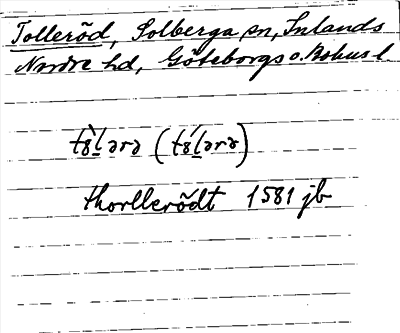 Tolleröd, Solberga sn, Inlands
Nordre hd, Göteborgs o. Bohus l.
thorllerödt 1581 jb